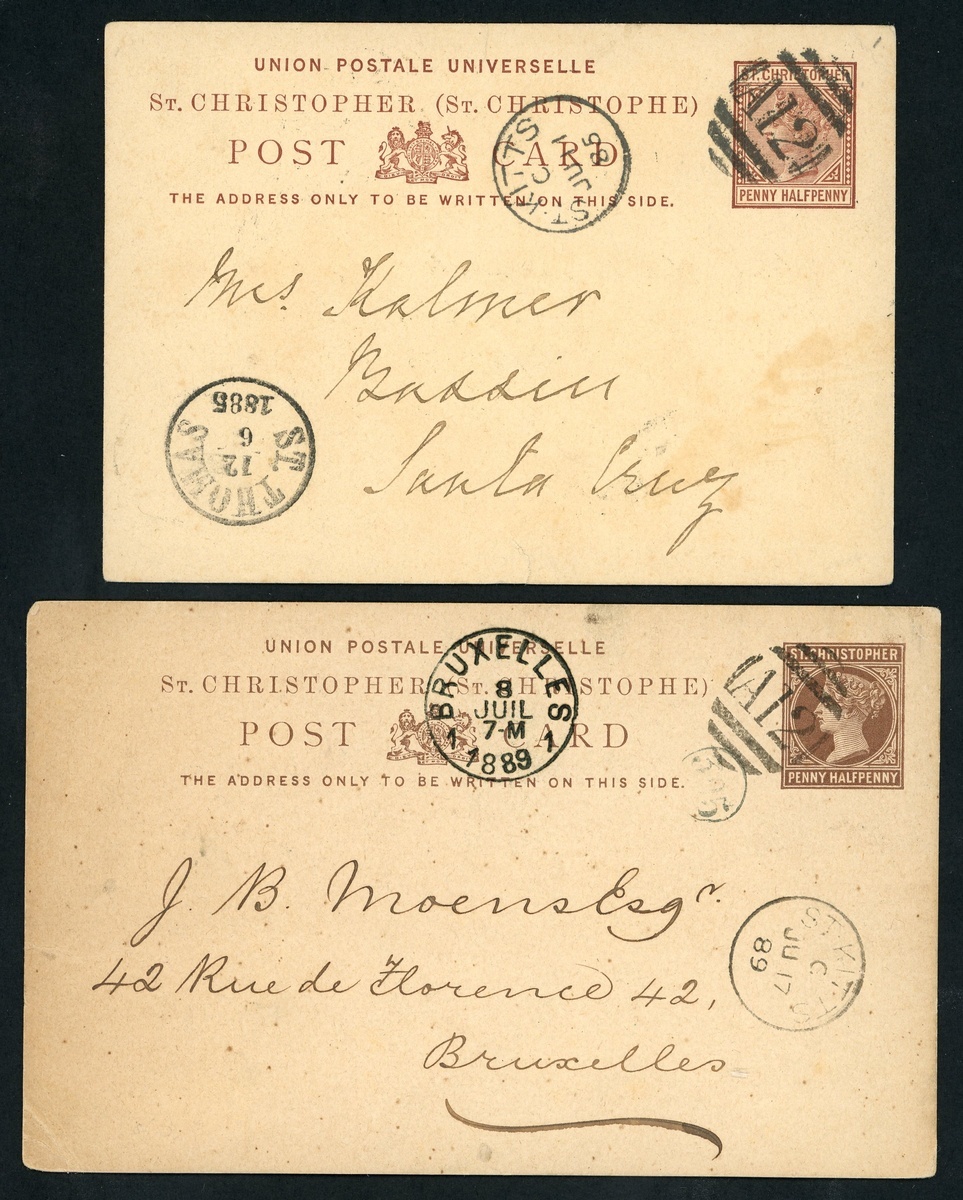 UNION POSTALE UNIVERSELLE
ST. CHRISTOPHER (ST. CHRISTOPHE)
POST CARD
THE ADDRESS ONLY TO BE WRITTEN ON THIS SIDE.
ST. CHRISTOPHER
PENNY HALFPENNY
A12
ST. KITTS
C
JU 1
85
Mrs. Kalmer
Bassin
Santa Cruz
ST. THOMAS
12
6
1885
UNION POSTALE UNIVERSELLE
ST. CHRISTOPHER (ST. CHRISTOPHE)
POST CARD
THE ADDRESS ONLY TO BE WRITTEN ON THIS SIDE.
ST. CHRISTOPHER
PENNY HALFPENNY
A12
BRUXELLES
8
JUIL
7-M
1 1889 1
J. B. Moens Esqr.
42 Rue de Florence 42,
Bruxelles
ST. KITTS
C
JU 17
89